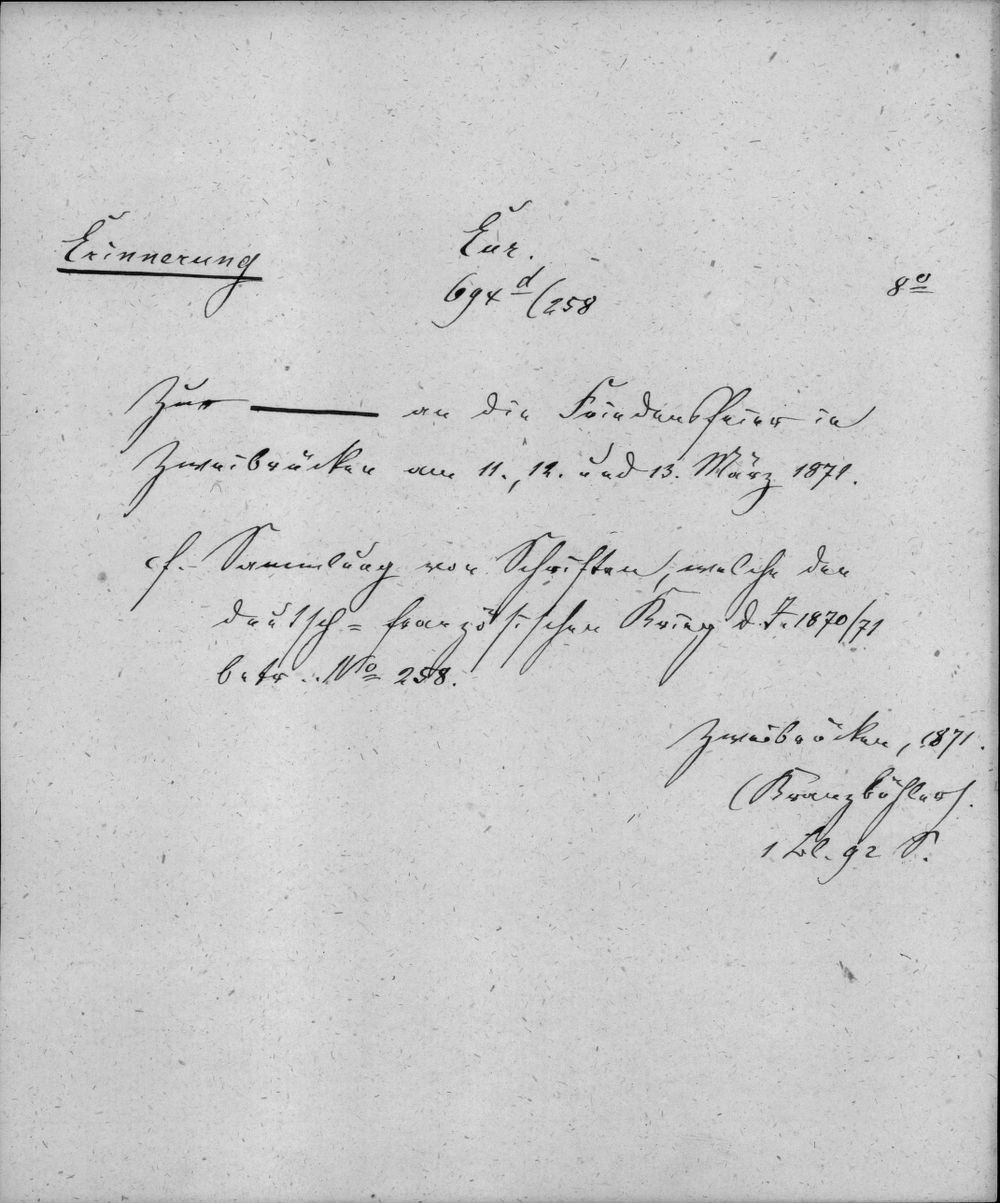 Erinnerung
Eur.
694 d/258
8o
Zur ——— an die Friedensfeier in
Zweibrücken am 11., 12. und 13. März 1871.
cf. Sammlung von Schriften, welche den
deutsch-französischen Krieg d. J. 1870/71
betr. No 258.
Zweibrücken, 1871.
(Kranzbühler).
1 Bl. 92 S.